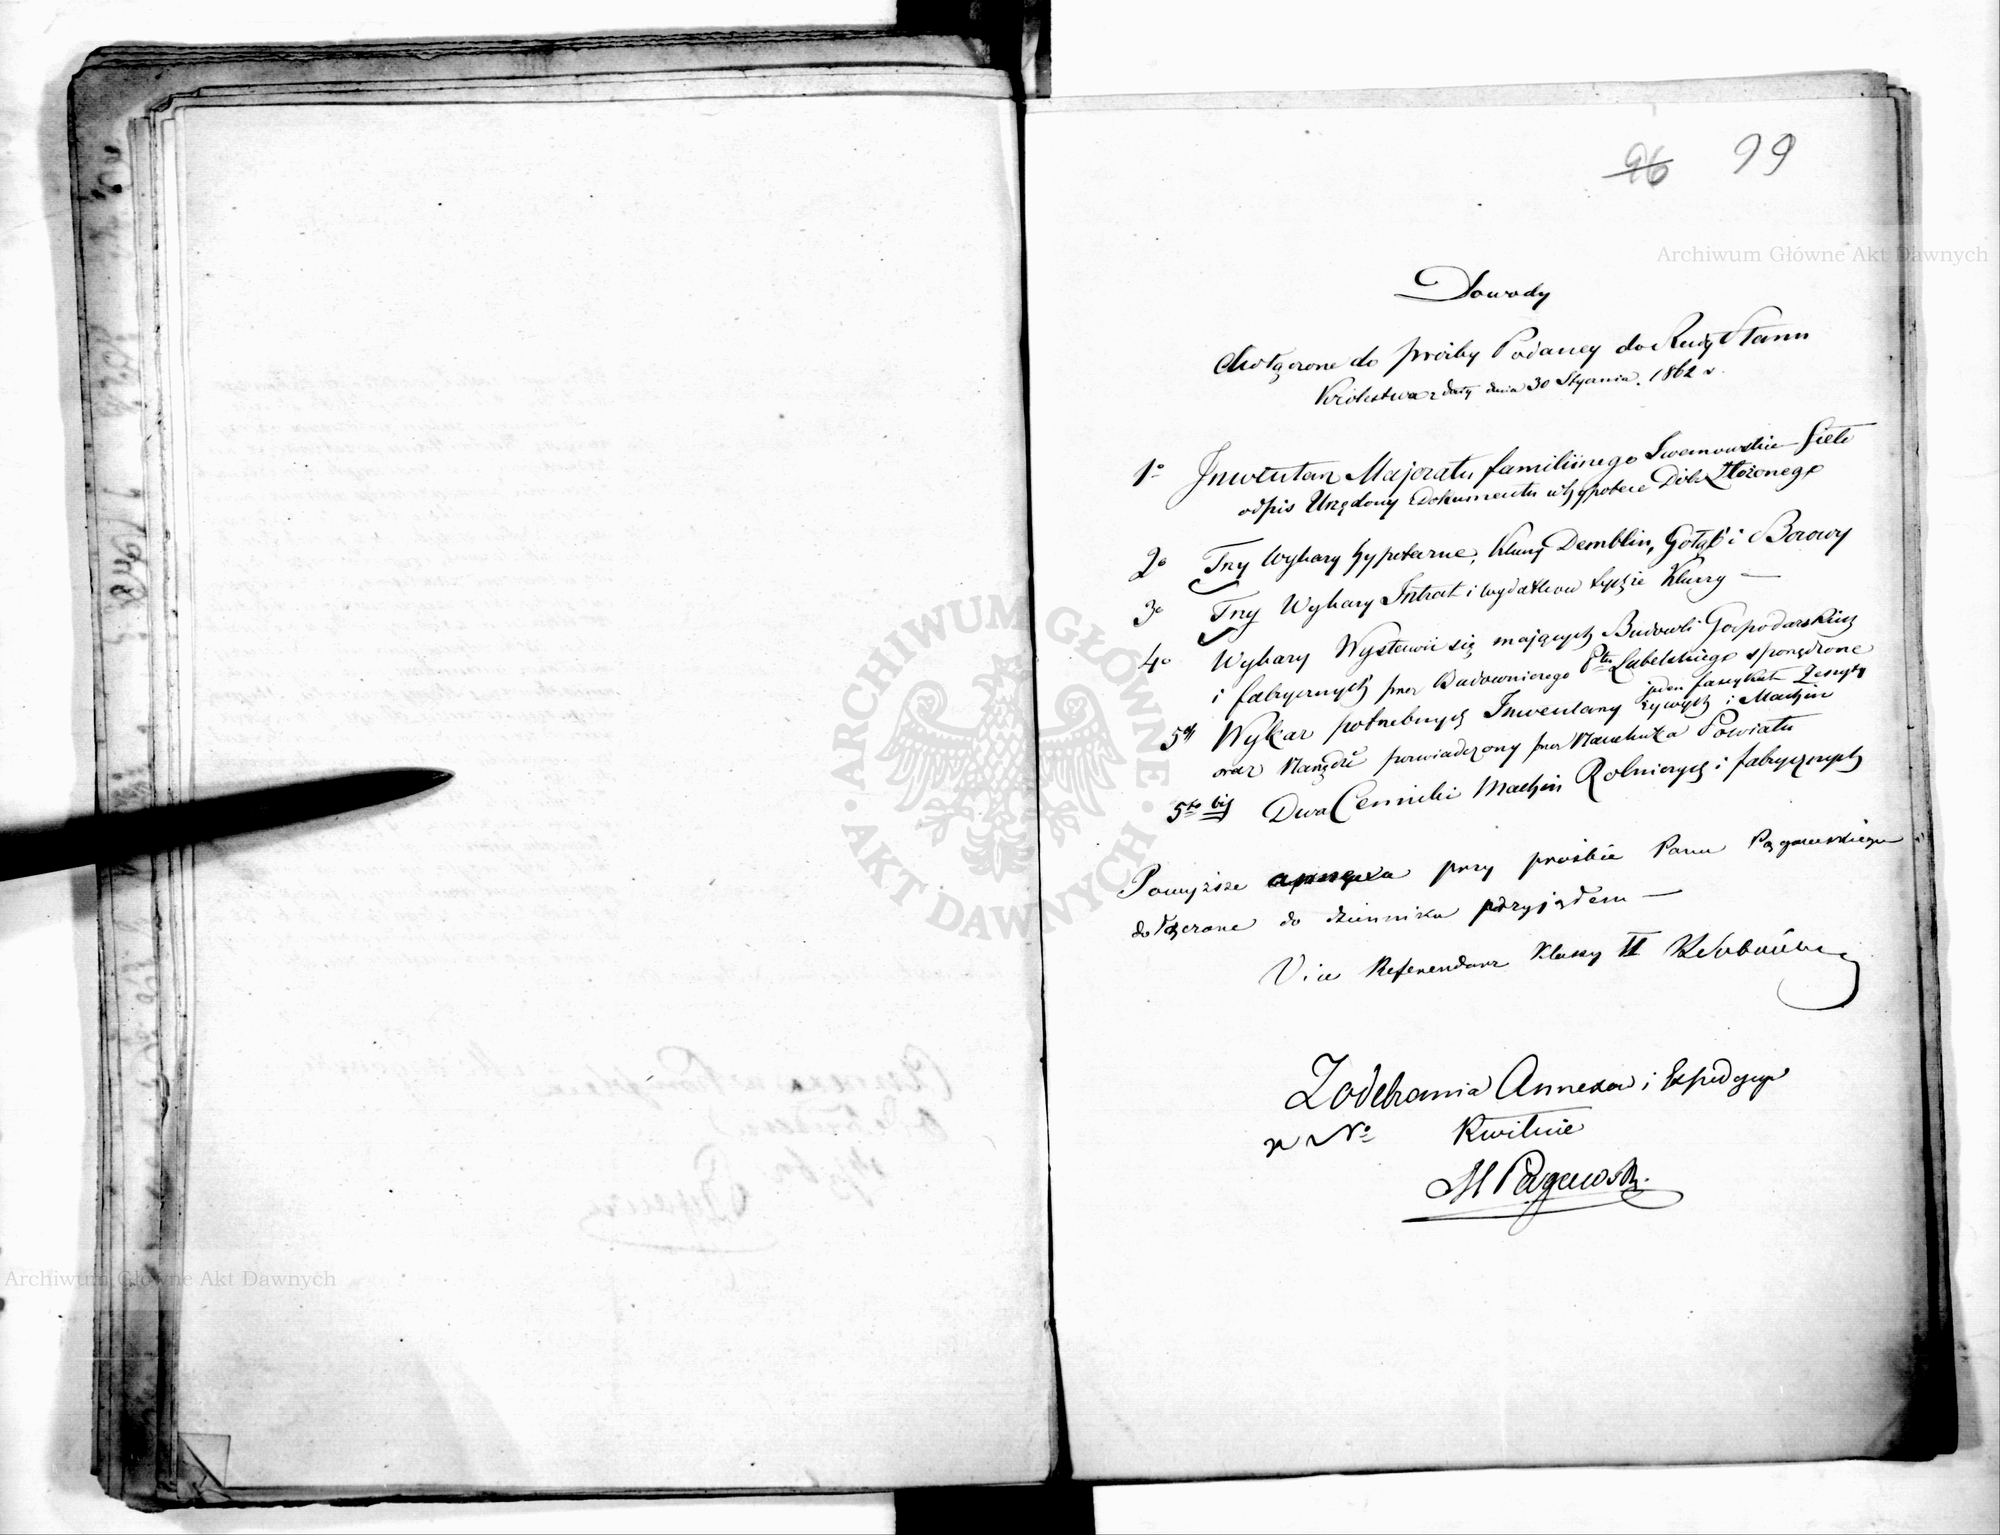 96 99
Archiwum Główne Akt Dawnych
Dowody
dołączone do prośby Podaney do Rady Stanu
Królestwa z daty dnia 30 Stycznia 1862 r.
1o Inwentarz Majoratu familijnego Iwanowskie Sioło
odpis Urzędowy Dokumentu w hypotece Dóbr Złożonego
2o Trzy Wykazy hypoteczne, Kluczy Demblin, Gołąb i Borowy
3o Trzy Wykazy Intrat i wydatków tychże Kluczy —
4o Wykazy Wystawić się mających Budowli Gospodarskich
i fabrycznych przez Budowniczego Ptu Lubelskiego sporządzone
jeden fascykuł Zeszyty
5ty Wykaz potrzebnych Inwentarzy żywych i Machin
oraz Narzędzi poświadczony przez Naczelnika Powiatu
5to bis Dwa Cenniki Machin Rolniczych i fabrycznych
Powyższe annexa przy prośbie Pana
dołączone do dziennika przyjąłem —
Vice Referendarz Klassy II
Z odebrania Annexów i Expedycyi
za No Kwituie
M
ARCHIWUM GŁÓWNE AKT DAWNYCH
Archiwum Główne Akt Dawnych